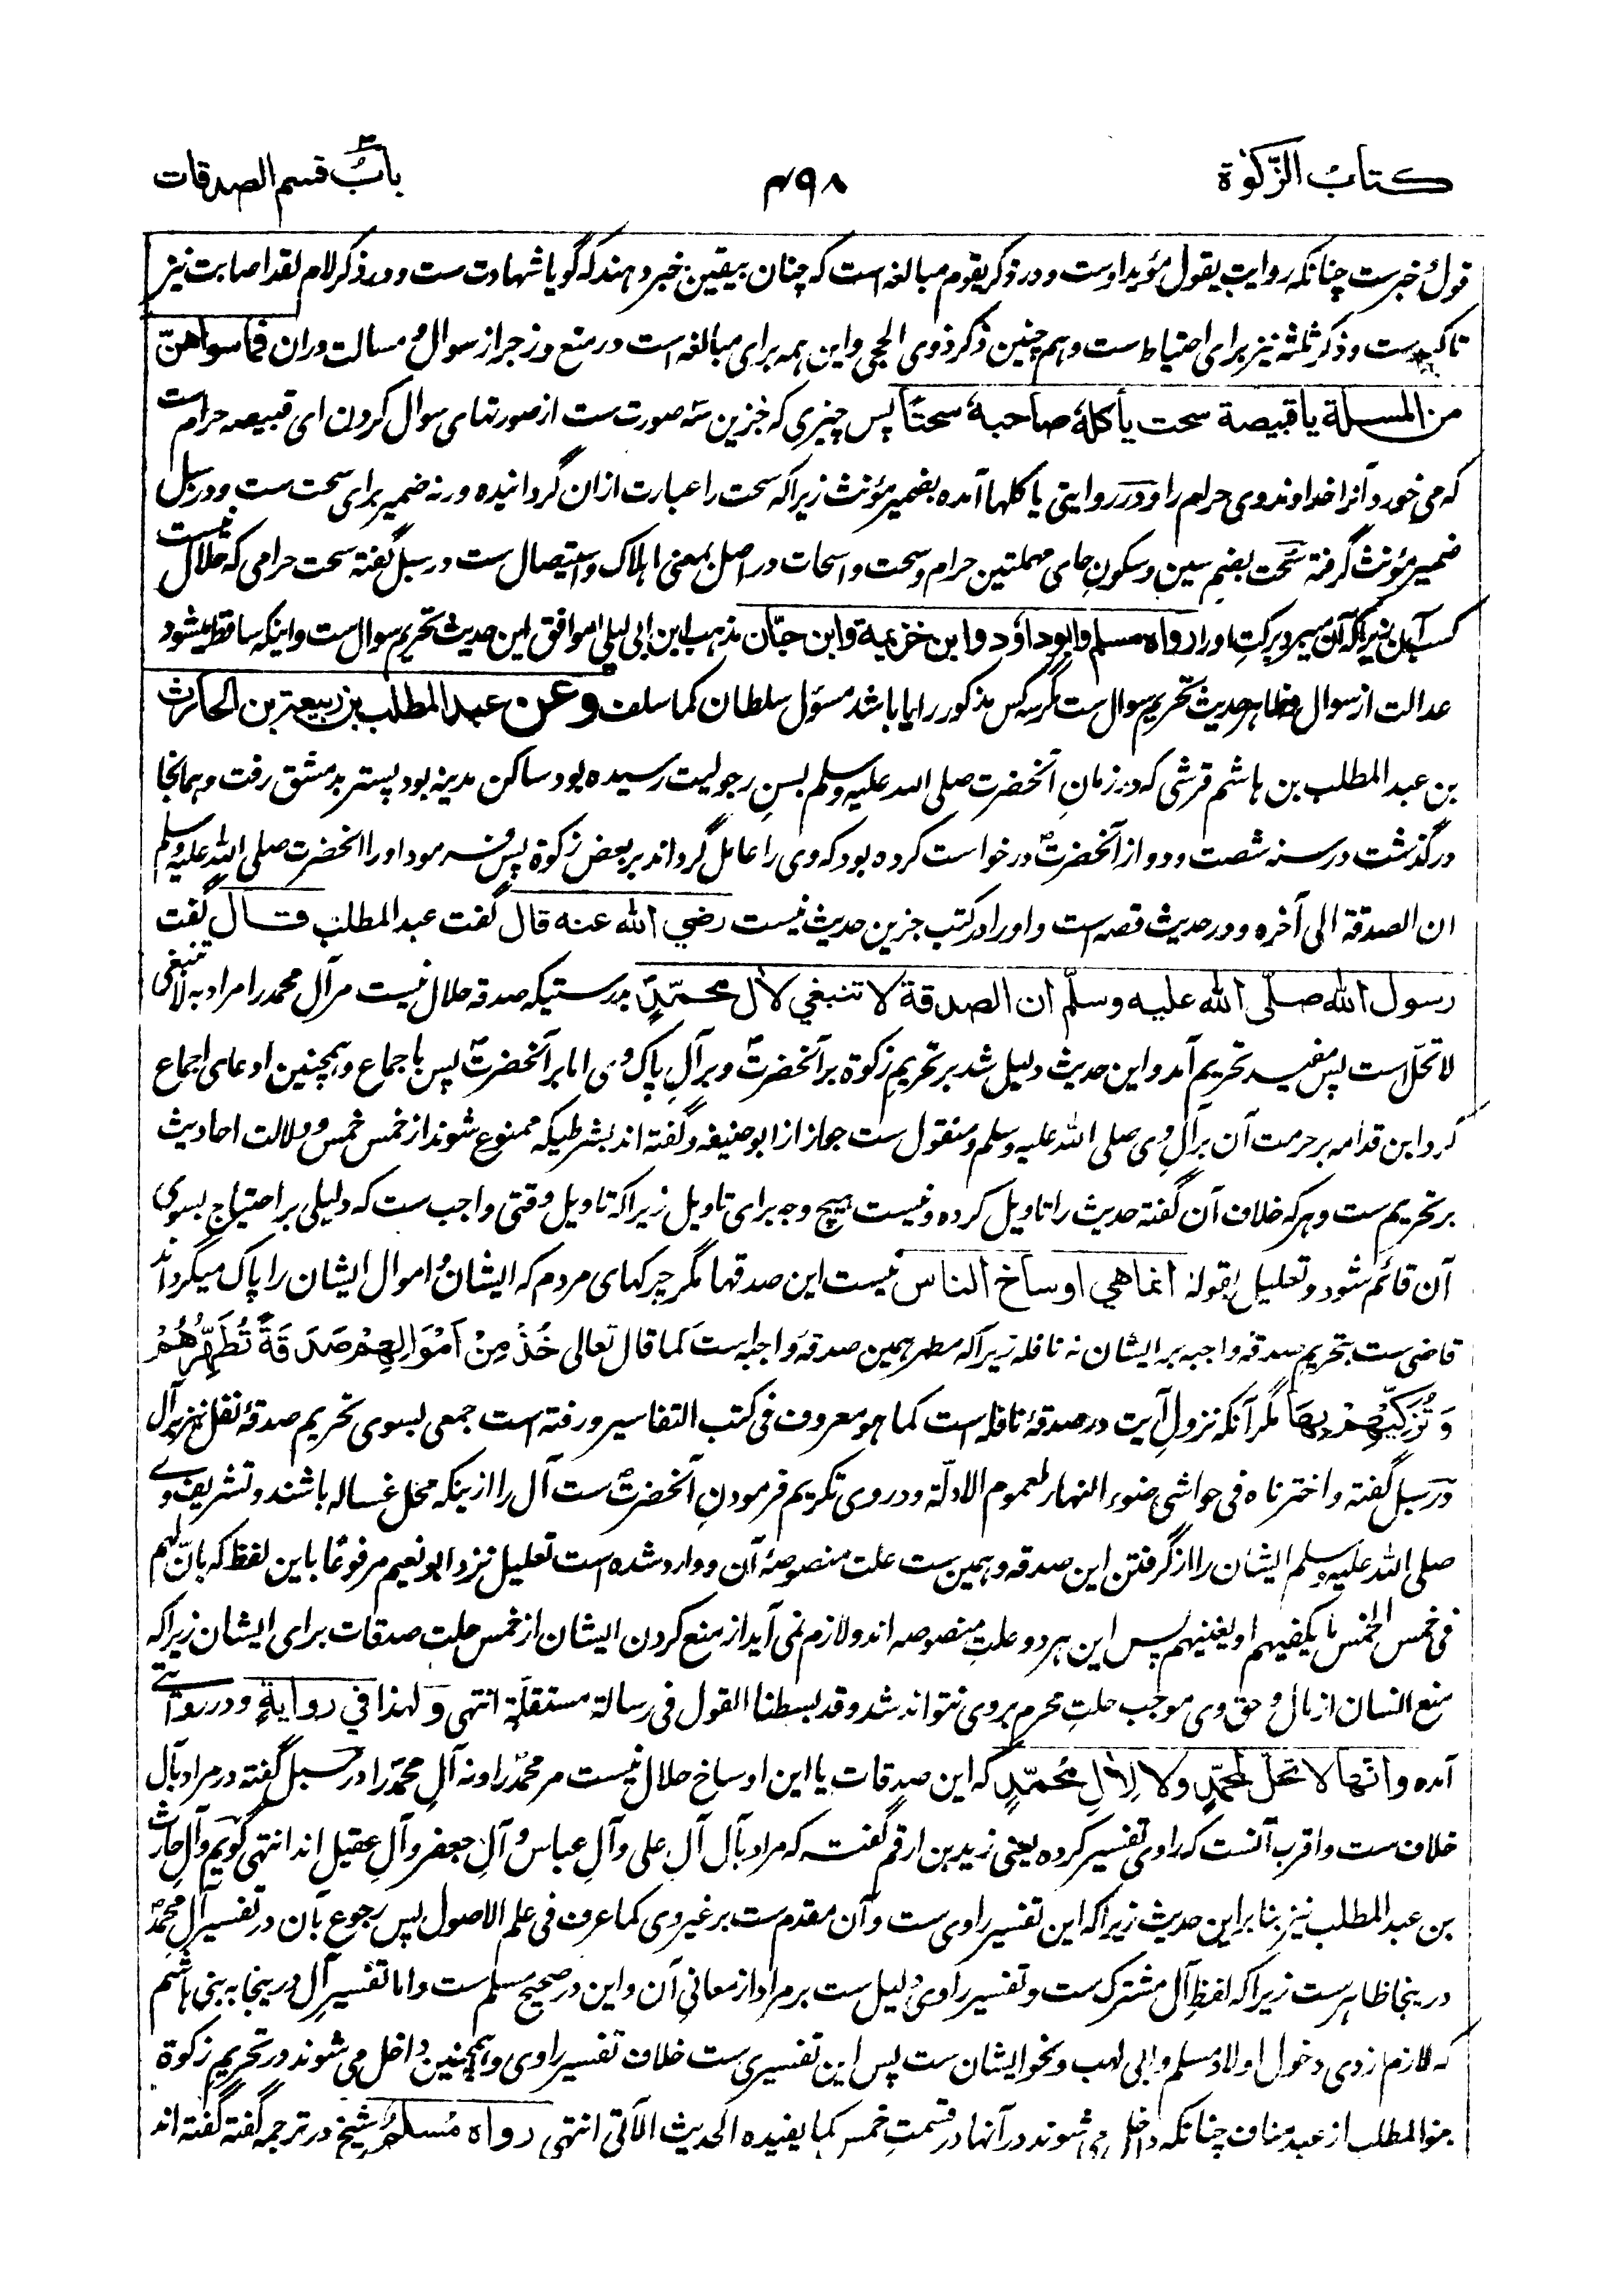 كتاب الزكوة
۴۹۸
باب قسم الصدقات
قول خبرست چنانکه روایت یقول مؤید اوست و در ذکر یقوم مبالغه است که چنان بیقین خبر دهند که گویا شهادت ست و در ذکر لام لقد اصابت نیز
تاکیدست و ذکر ثلثه نیز برای احتیاط ست و هم چنین ذکر ذوی الحجی و این همه برای مبالغه است در منع و زجر از سوال و مسالت دران فما سواهنّ
من المسئلة یا قبیصة سحت یأکله صاحبه سحتًا پس چیزی که جزین سه صورت ست از صورتهای سوال کردن ای قبیصه حرام ست
که می خورد آنرا خداوند وی حرام را و در روایتی یاکلها آمده بضمیر مؤنث زیراکه سحت را عبارت ازان گردانیده ورنه ضمیر برای سحت ست و در سبل
ضمیر مؤنث گرفته سحت بضم سین و سکون حای مهملتین حرام و سحت و اسحات در اصل بمعنی اهلاک و استیصال ست در سبل گفته سحت حرامی که حلال نیست
کسب آن زیراکه آن میبرد برکت او را رواه مسلم وابو داؤد وابن خزیمة وابن حبّان مذهب ابن ابی لیلی موافق این حدیث تحریم سوال ست و اینکه ساقط میشود
عدالت از سوال و ظاهر حدیث تحریم سوال ست مگر سه کس مذکور را یا باشد مسؤل سلطان کما سلف وعن عبد المطلب بن ربیعة بن الحارث
بن عبد المطلب بن هاشم قرشی که در زمان آنحضرت صلی الله علیه وسلم بسن رجولیت رسیده بود ساکن مدینه بود پستر بدمشق رفت و همانجا
درگذشت در سنه شصت و دو از آنحضرتؐ درخواست کرده بود که وی را عامل گرداند بر بعض زکوة پس فرمود او را آنحضرت صلی الله علیه وسلم
ان الصدقة الی آخره و در حدیث قصه است و او را در کتب جزین حدیث نیست رضي الله عنه قال گفت عبد المطلب قال گفت
رسول الله صلّی الله علیه وسلّم ان الصدقة لا تنبغي لآل محمّدٍ بدرستیکه صدقه حلال نیست مر آل محمد را مراد به لا تنبغی
لا تحل است پس مفید تحریم آمد و این حدیث دلیل شد بر تحریم زکوة بر آنحضرتؐ و بر آل پاک وی اما بر آنحضرتؐ پس باجماع و همچنین ادعای اجماع
کرد ابن قدامه بر حرمت آن بر آل وی صلی الله علیه وسلم و منقول ست جواز از ابو حنیفه و گفته اند بشرطیکه ممنوع شوند از خمس خمس و دلالت احادیث
بر تحریم ست و هر که خلاف آن گفته حدیث را تاویل کرده و نیست هیچ وجه برای تاویل زیراکه تاویل وقتی واجب ست که دلیلی بر احتیاج بسوی
آن قائم شود و تعلیل بقوله انما هي اوساخ الناس نیست این صدقها مگر چرکهای مردم که ایشان و اموال ایشان را پاک میگرداند
قاضی ست بتحریم صدقه واجبه بر ایشان نه نافله زیراکه مطهر همین صدقه واجبه است کما قال تعالی خُذْ مِنْ اَمْوَالِهِمْ صَدَقَةً تُطَهِّرُهُمْ
وَتُزَكِّيْهِمْ بِهَا مگر آنکه نزول آیت در صدقۀ نافله است کما هو معروف فی کتب التفاسیر و رفته است جمعی بسوی تحریم صدقۀ نفل نیز بر آل
در سبل گفته و اخترناه فی حواشی ضوء النهار لعموم الادلّة و دروی تکریم فرمودن آنحضرتؐ ست آل را ازینکه محل غساله باشند و تشریف وے
صلی الله علیه وسلم ایشان را از گرفتن این صدقه و همین ست علت منصوصۀ آن و وارد شده است تعلیل نزد ابو نعیم مرفوعًا باین لفظ که بانّ لهم
فی خمس الخمس ما یکفیهم او یغنیهم پس این هر دو علت منصوصه اند و لازم نمی آید از منع کردن ایشان از خمس حلت صدقات برای ایشان زیراکه
منع انسان از مال و حق وی موجب حلت محرم بروی نتواند شد و قد بسطنا القول فی رسالة مستقلّة انتهی ولهذا في روایةٍ و در روایتے
آمده وانّها لا تحلّ لمحمّدٍ ولا لآلِ محمّدٍ که این صدقات یا این اوساخ حلال نیست مر محمدؐ را و نه آل محمّدؐ را در سبل گفته در مراد بآل
خلاف ست و اقرب آنست که راوی تفسیر کرده یعنی زید بن ارقم گفت که مراد بآل آل علی و آل عباس و آل جعفر و آل عقیل اند انتهی گویم و آل حارث
بن عبد المطلب نیز بنا بر این حدیث زیراکه این تفسیر راوی ست و آن مقدم ست بر غیر وی کما عرف فی علم الاصول پس رجوع بآن در تفسیر آل محمدؐ
درینجا ظاهرست زیراکه لفظ آل مشترک ست و تفسیر راوی دلیل ست بر مراد از معانی آن و این در صحیح مسلم ست و اما تفسیر آل درینجا به بنی هاشم
که لازم ازوی دخول اولاد مسلم و ابی لهب و نحو ایشان ست پس این تفسیری ست خلاف تفسیر راوی و همچنین داخل می شوند در تحریم زکوة
بنو المطلب از عبد مناف چنانکه داخل می شوند در آنها در قسمت خمس کما یفیده الحدیث الآتی انتهی رواه مُسلم شیخ در ترجمه گفته گفته اند